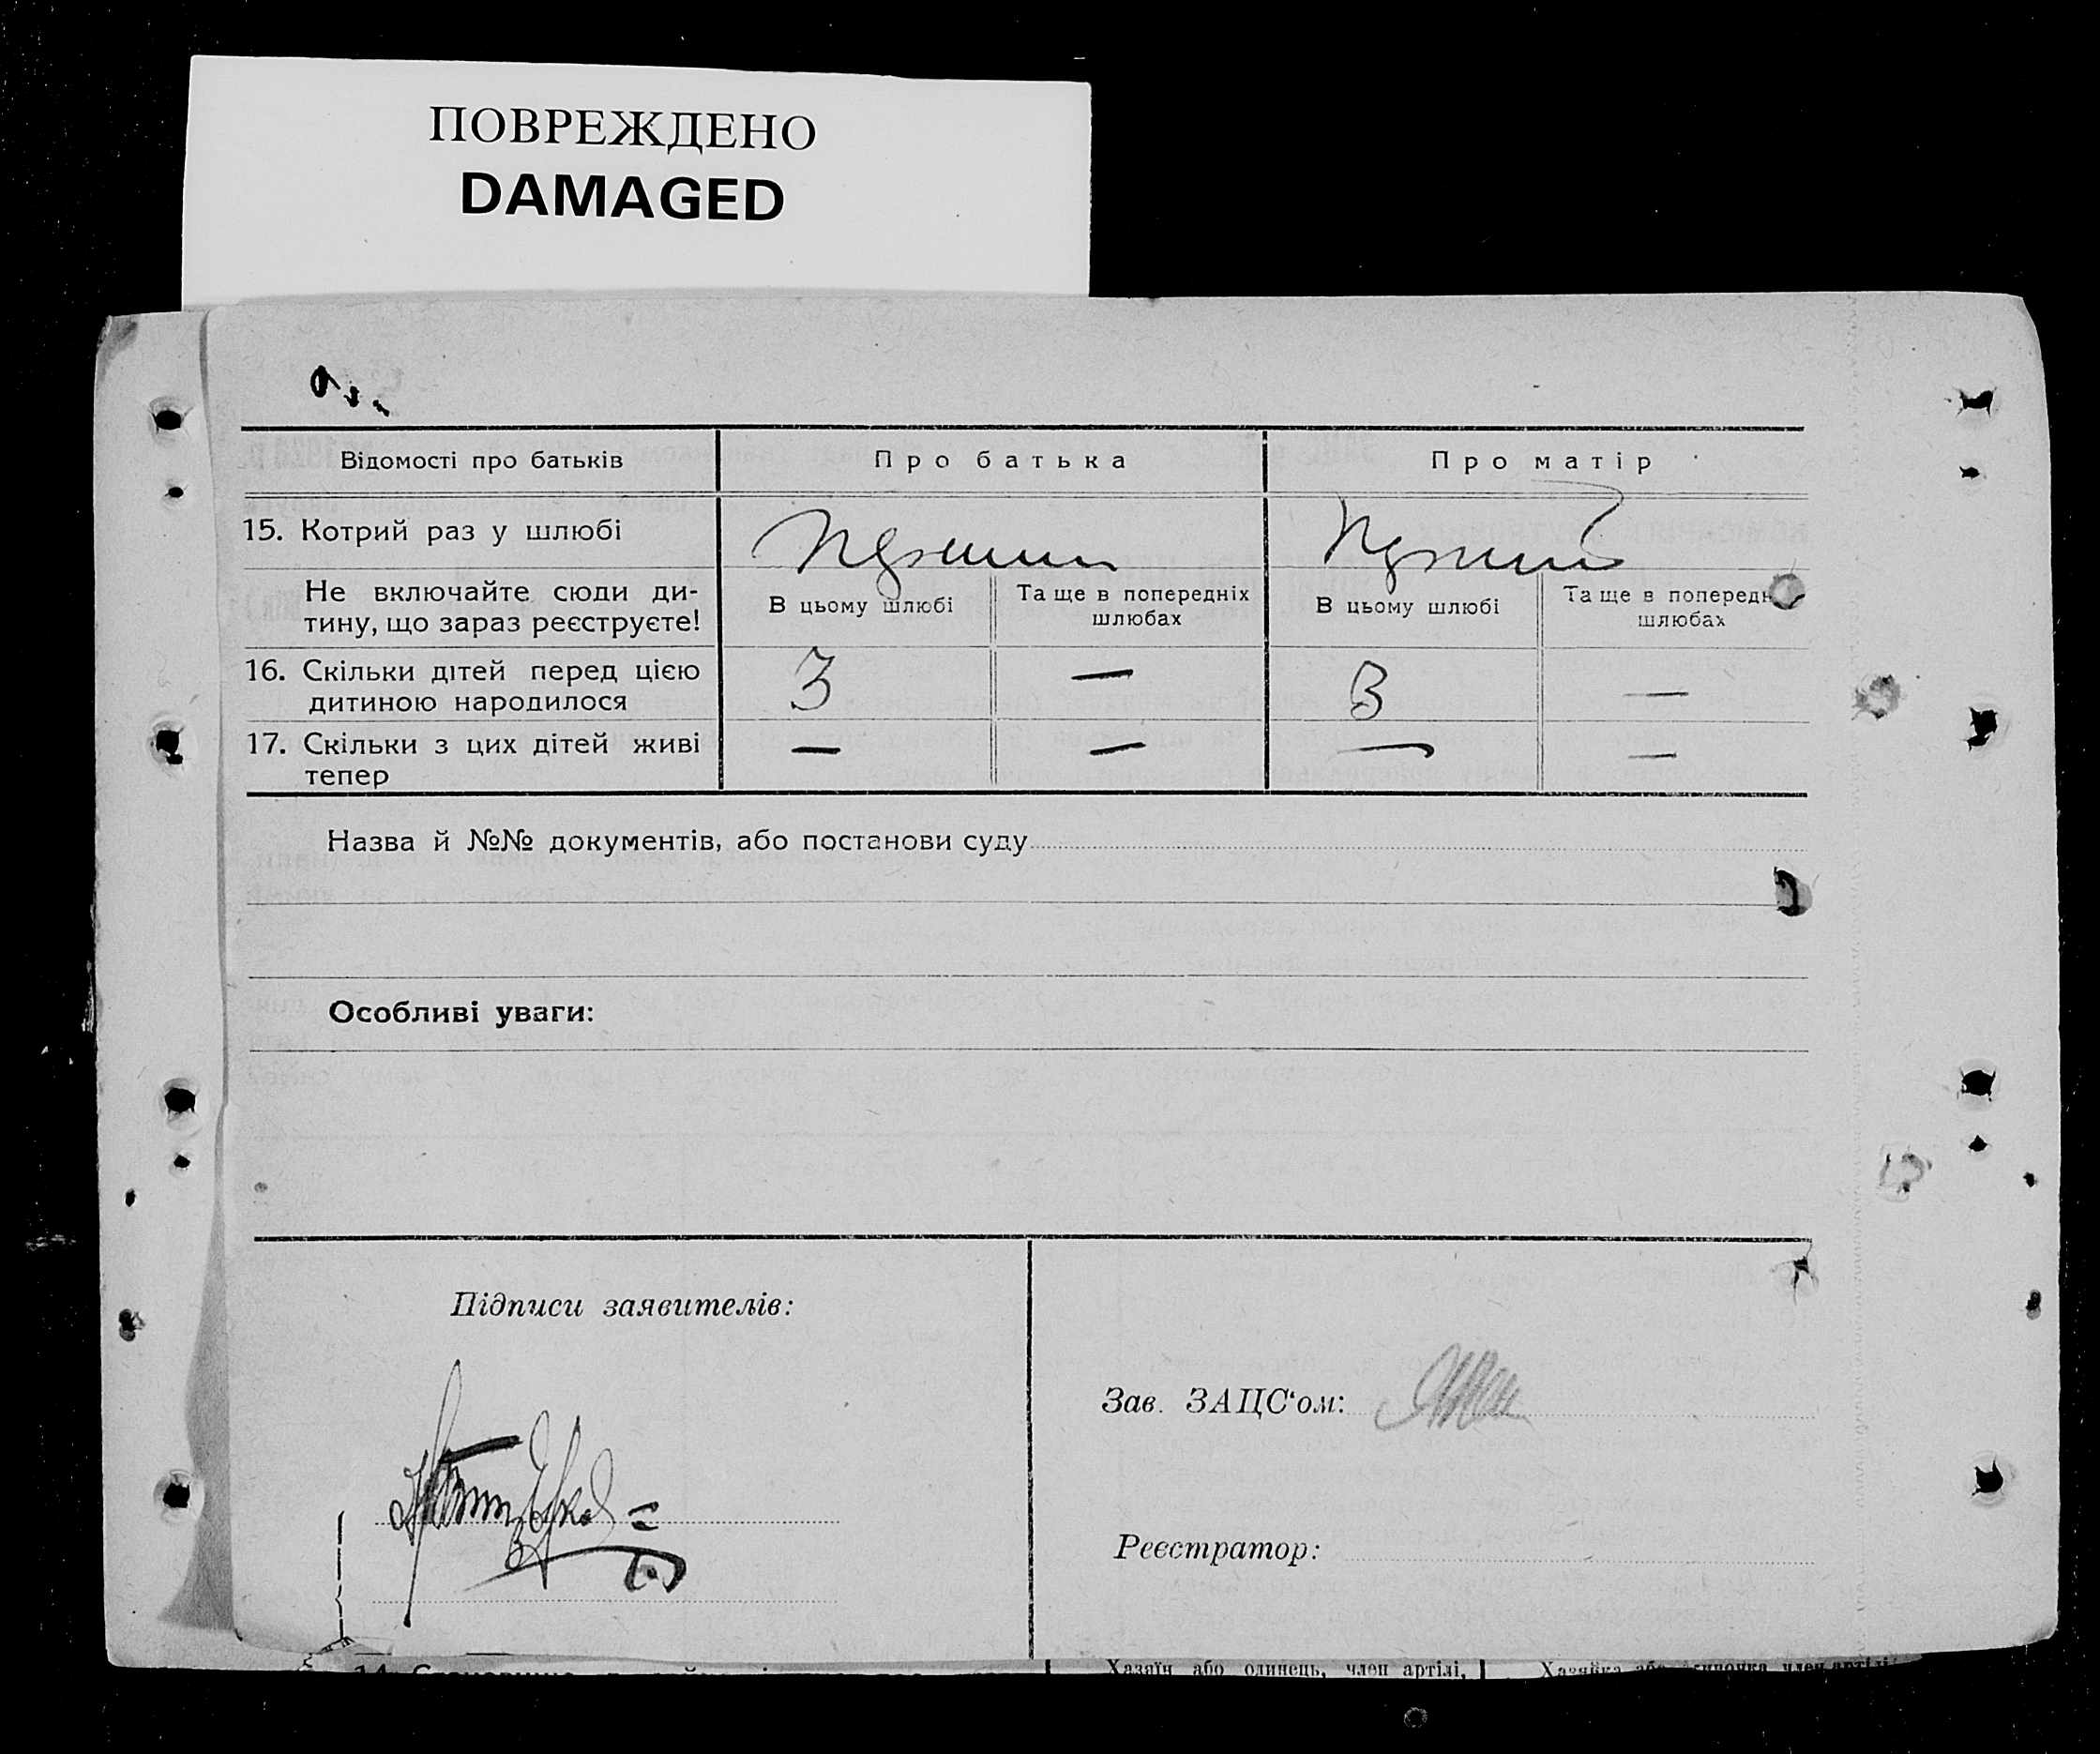 ПОВРЕЖДЕНО
DAMAGED
Відомості про батьків
Про батька
Про матір
15. Котрий раз у шлюбі
Не включайте сюди ди-
тину, що зараз реєструєте!
В цьому шлюбі
Та ще в попередніх
шлюбах
В цьому шлюбі
Та ще в поперед
шлюбах
16. Скільки дітей перед цією
дитиною народилося
3
—
3
—
17. Скільки з цих дітей живі
тепер
—
—
—
—
Назва й №№ документів, або постанови суду
Особливі уваги:
Підписи заявителів:
Зав. ЗАЦС‘ом:
Реєстратор:
Хазяїн або одинець, член артілі,